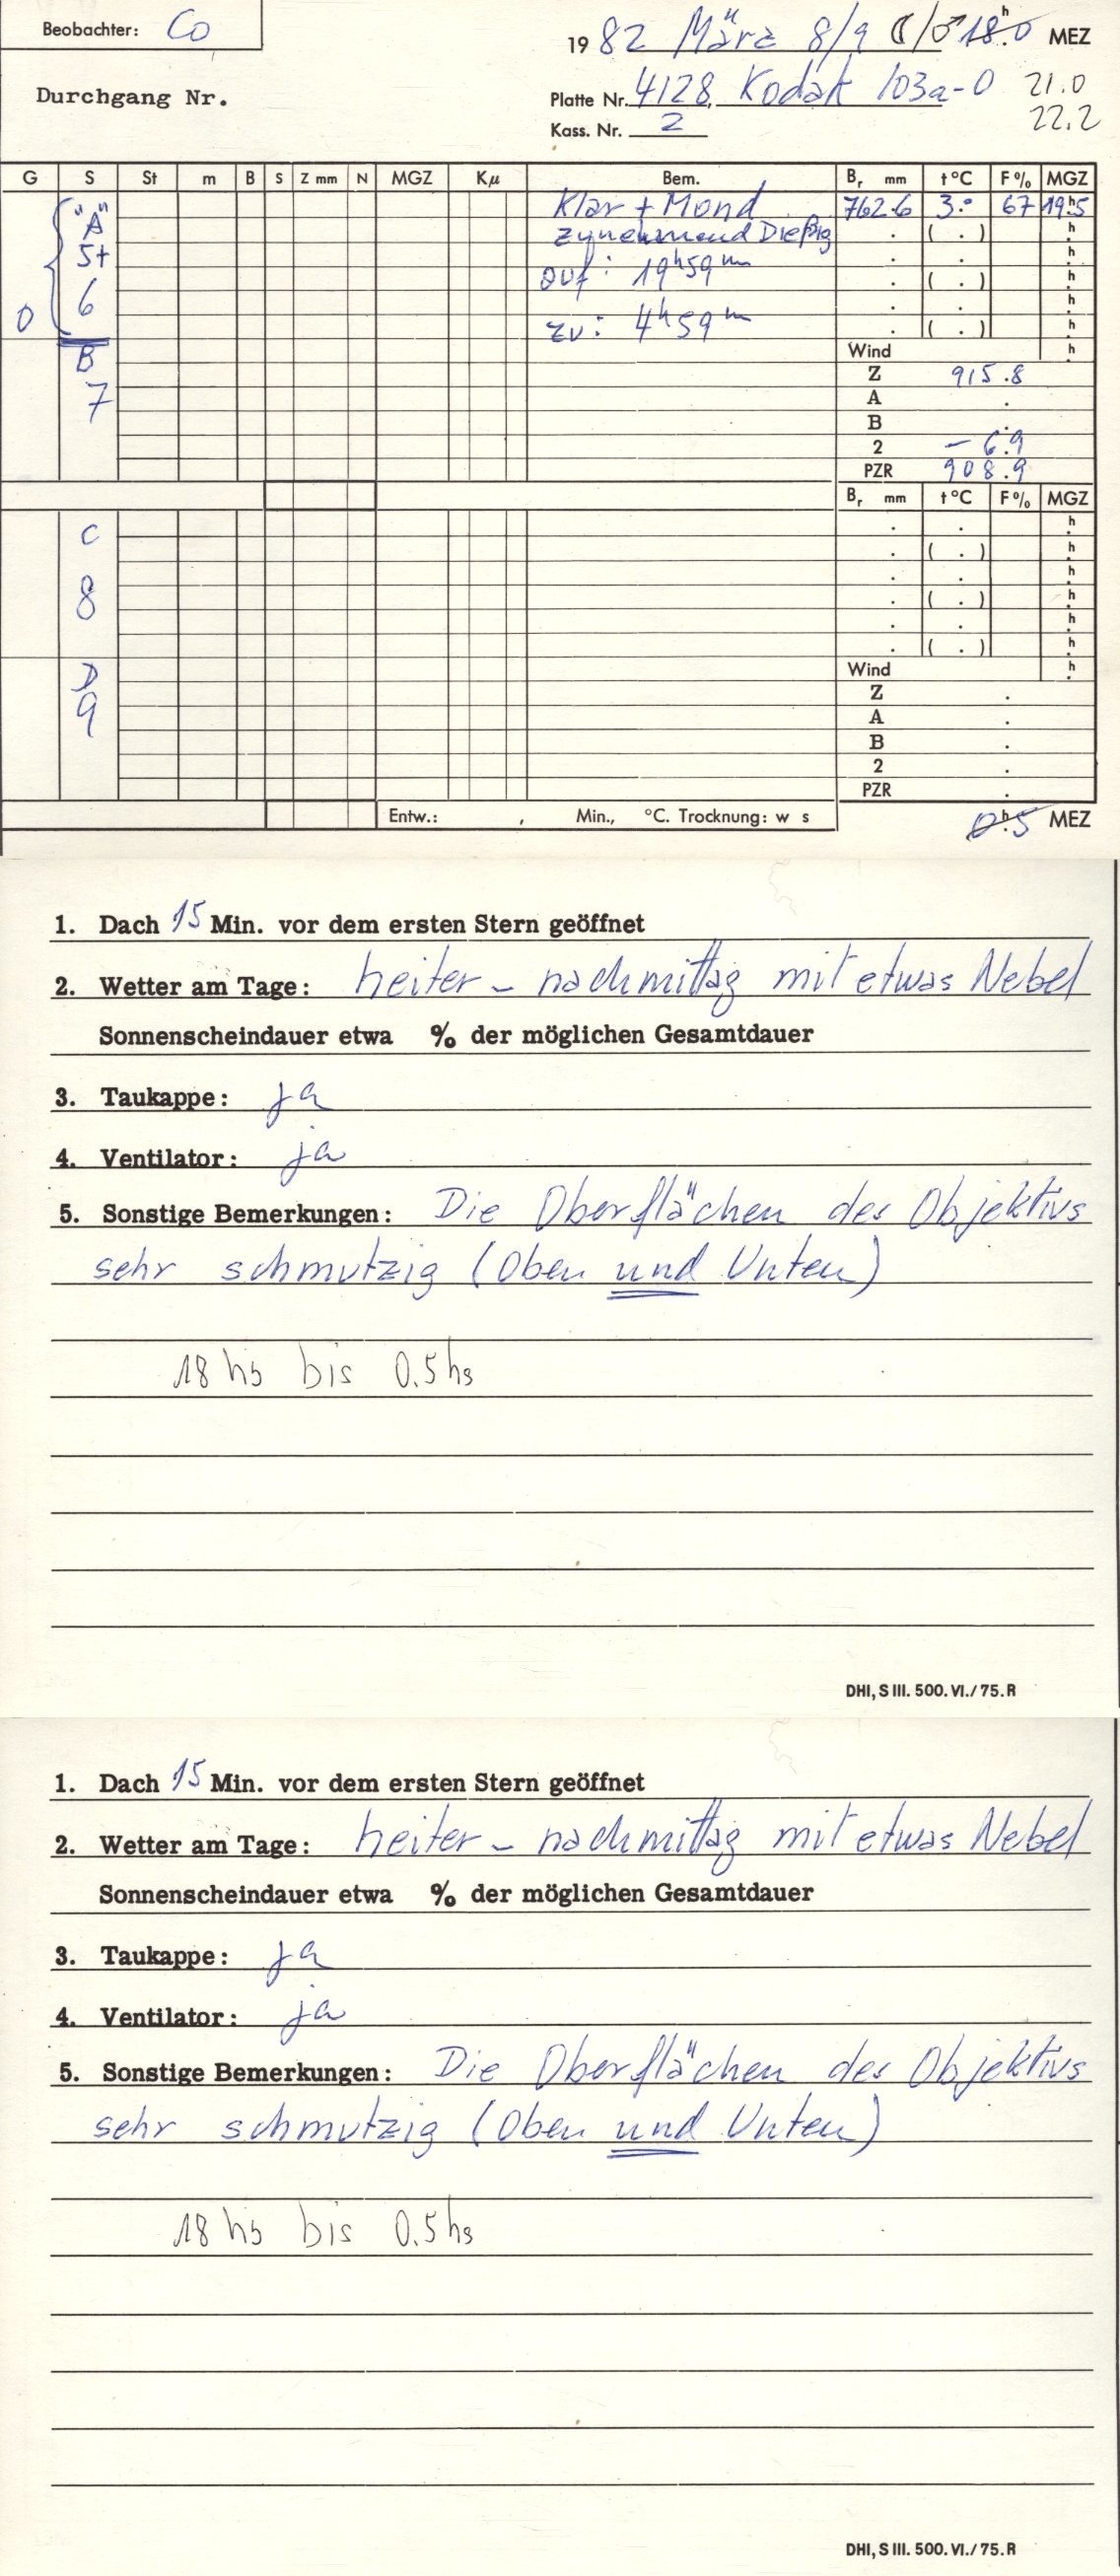 Beobachter: Co
19 82 März 8/9 ☾/♂ 18.h0 MEZ
Durchgang Nr.
Platte Nr. 4128, Kodak 103a-O 21.0
Kass. Nr. 2 22.2
G S St m B S Z mm N MGZ Kμ Bem. Br mm t°C F% MGZ
"A" Klar + Mond 762.6 3.° 67 19h.5
zunehmend Dießig . ( . ) h
5+ auf: 19h59m . . h
6 . ( . ) h
0 zu: 4h59m . . h
. ( . ) h
B Wind h
7 Z 915.8
A .
B .
2 - 6.9
PZR 908.9
Br mm t°C F% MGZ
C . . h
. ( . ) h
. . h
8 . ( . ) h
. . h
. ( . ) h
D Wind h
9 Z .
A .
B .
2 .
PZR .
Entw.: , Min., °C. Trocknung: w s 0h.5 MEZ
1. Dach 15 Min. vor dem ersten Stern geöffnet
2. Wetter am Tage: heiter - nachmittag mit etwas Nebel
Sonnenscheindauer etwa % der möglichen Gesamtdauer
3. Taukappe: ja
4. Ventilator: ja
5. Sonstige Bemerkungen: Die Oberflächen des Objektivs
sehr schmutzig (Oben und Unten)
18 hs bis 0.5 hs
DHI, S III. 500. VI./75. R
1. Dach 15 Min. vor dem ersten Stern geöffnet
2. Wetter am Tage: heiter - nachmittag mit etwas Nebel
Sonnenscheindauer etwa % der möglichen Gesamtdauer
3. Taukappe: ja
4. Ventilator: ja
5. Sonstige Bemerkungen: Die Oberflächen des Objektivs
sehr schmutzig (Oben und Unten)
18 hs bis 0.5 hs
DHI, S III. 500. VI./75. R